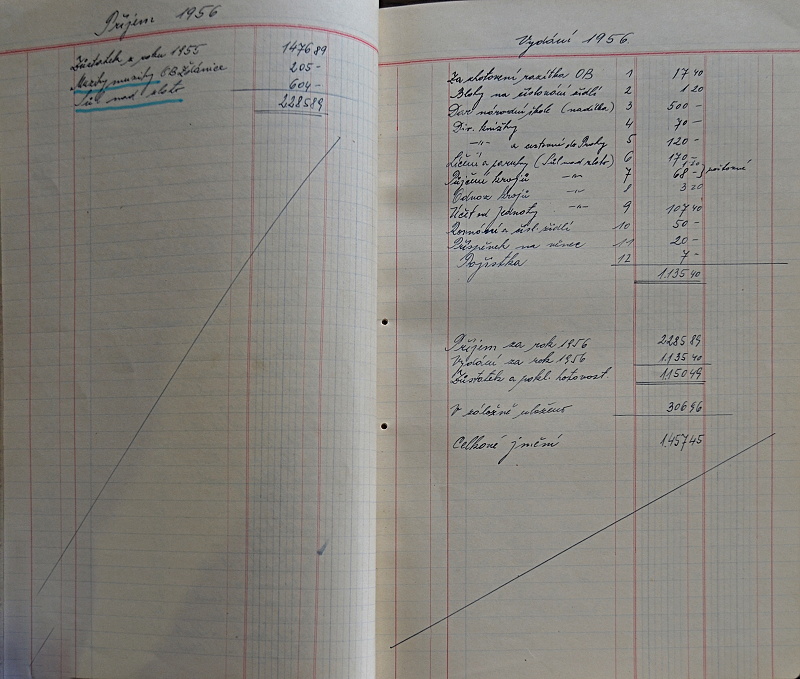 Příjem 1956
Zůstatek z roku 1955 1476 89
OB Ždánice 205 -
Sůl nad zlato 604 -
2285 89
Vydání 1956
Za zhotovení razítka OB 1 17 40
Bloky na židlí 2 1 20
Dar národní škole (nadílka) 3 500 -
Div. knížky 4 70 -
-"- a cestovné do Prahy 5 120 -
Líčení a paruky (Sůl nad zlato) 6 170 -
Půjčení krojů -"- 7 68 - poštovné
Odvoz krojů -"- 8 3 20
Účet od Jednoty -"- 9 107 40
a židlí 10 50 -
Příspěvek na věnec 11 20 -
Pojistka 12 7 -
1.135 40
Příjem za rok 1956 2285 89
Vydání za rok 1956 1.135 40
Zůstatek a pokl. hotovost. 1150 49
V záložně uloženo 306 96
Celkové jmění 1.457 45